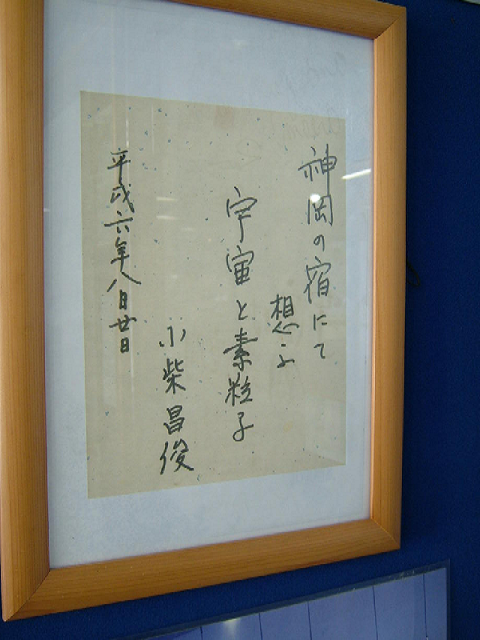 神岡の宿にて
想ふ
宇宙と素粒子
小柴昌俊
平成六年八月廿日